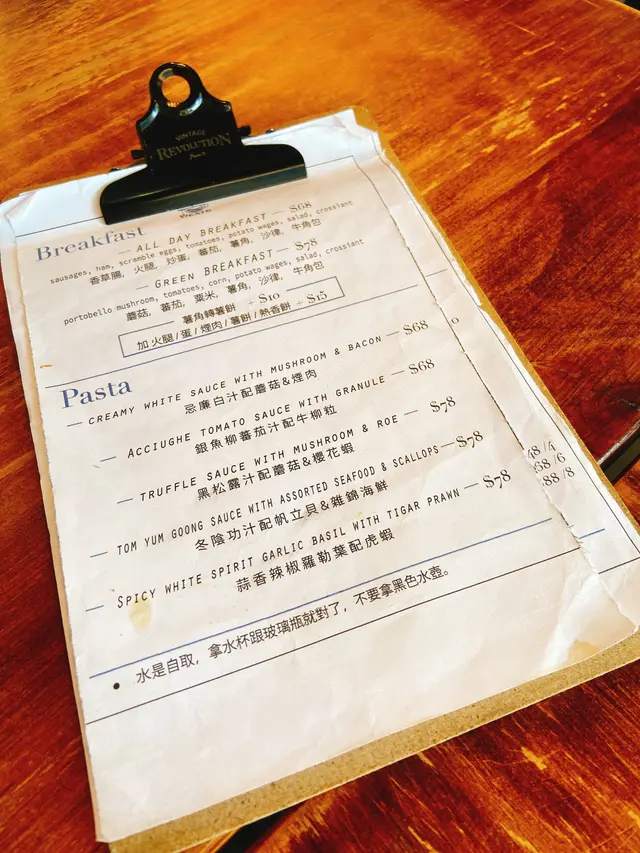 VINTAGE
REVOLUTION
Breakfast
— ALL DAY BREAKFAST — $68
sausages, ham, scramble eggs, tomatoes, potato wages, salad, crossiant
香草腸, 火腿, 炒蛋, 蕃茄, 薯角, 沙律, 牛角包
— GREEN BREAKFAST — $78
portobello mushroom, tomatoes, corn, potato wages, salad, crossiant
蘑菇, 蕃茄, 粟米, 薯角, 沙律, 牛角包
薯角轉薯餅 + $10
加火腿/蛋/煙肉/薯餅/熱香餅 + $15
Pasta
— CREAMY WHITE SAUCE WITH MUSHROOM & BACON — $68
忌廉白汁配蘑菇&煙肉
— ACCIUGHE TOMATO SAUCE WITH GRANULE — $68
銀魚柳蕃茄汁配牛柳粒
— TRUFFLE SAUCE WITH MUSHROOM & ROE — $78
黑松露汁配蘑菇&櫻花蝦
— TOM YUM GOONG SAUCE WITH ASSORTED SEAFOOD & SCALLOPS — $78
冬陰功汁配帆立貝&雜錦海鮮
— SPICY WHITE SPIRIT GARLIC BASIL WITH TIGAR PRAWN — $78
蒜香辣椒羅勒葉配虎蝦
• 水是自取，拿水杯跟玻璃瓶就對了，不要拿黑色水壺。